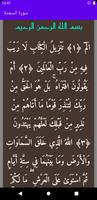 سورة السجدة
بسم الله الرحمن الرحيم
الم ﴿١﴾ تَنْزِيلُ الْكِتَابِ لَا رَيْبَ
فِيهِ مِن رَّبِّ الْعَالَمِينَ ﴿٢﴾ أَمْ
يَقُولُونَ افْتَرَاهُ ۚ بَلْ هُوَ الْحَقُّ
مِن رَّبِّكَ لِتُنذِرَ قَوْمًا مَّا أَتَاهُم
مِّن نَّذِيرٍ مِّن قَبْلِكَ لَعَلَّهُمْ
يَهْتَدُونَ ﴿٣﴾ اللَّهُ الَّذِي خَلَقَ
السَّمَاوَاتِ وَالْأَرْضَ وَمَا
بَيْنَهُمَا فِي سِتَّةِ أَيَّامٍ ثُمَّ
اسْتَوَىٰ عَلَى الْعَرْشِ ۖ مَا لَكُم